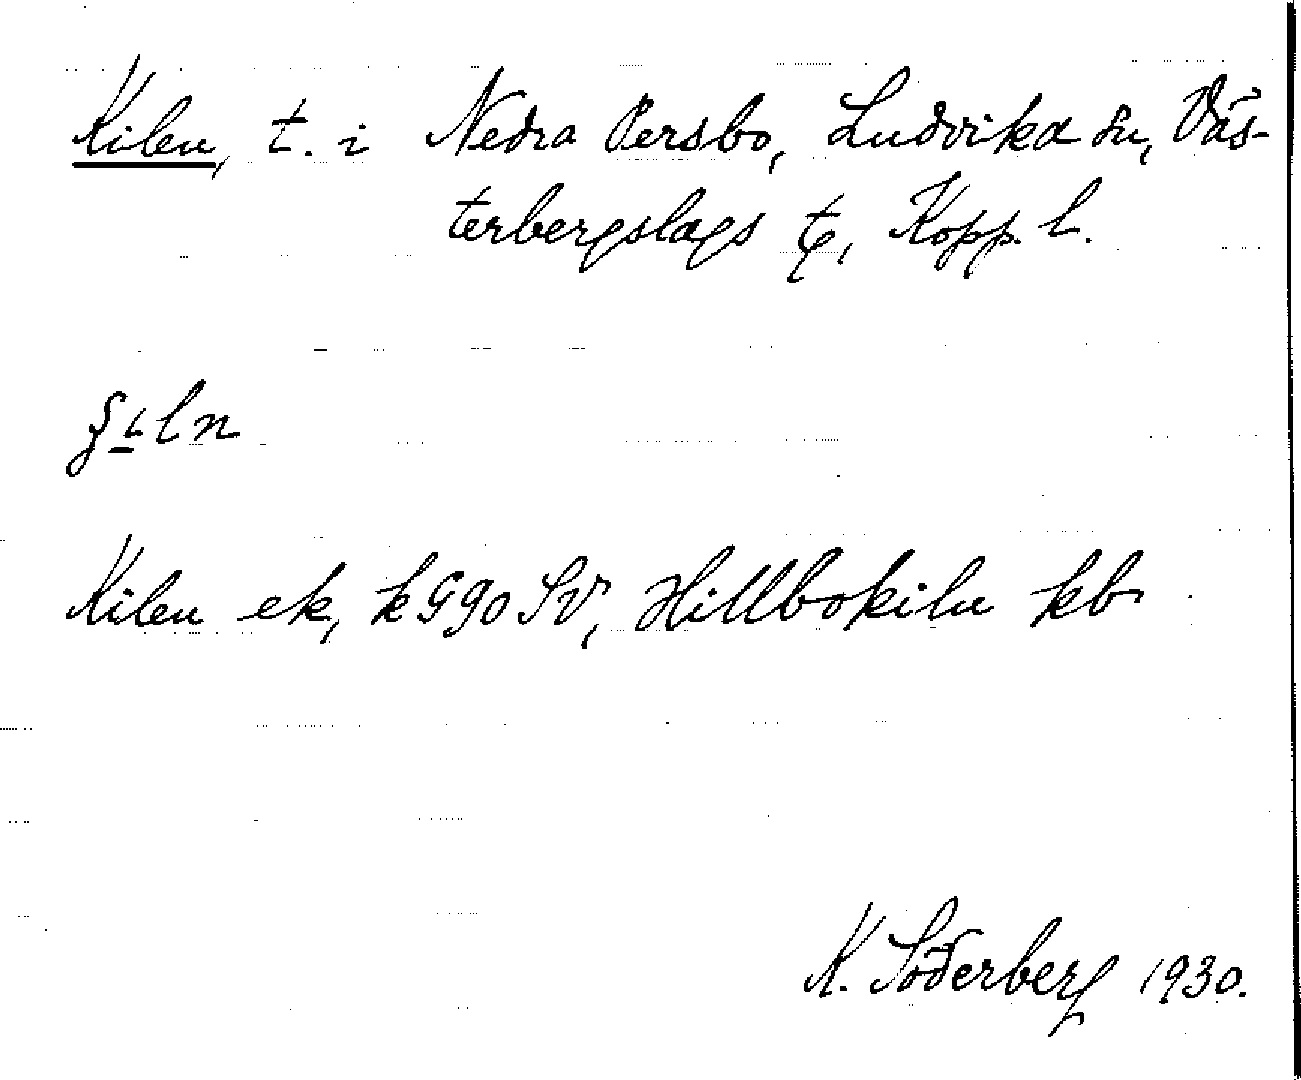 Kilen, t. i Nedra Persbo, Ludvika sn, Väs-
terbergslags tg, Kopp. l.
Kilen ek, k G90 SV, Hillbokilen kb
K. Söderberg 1930.